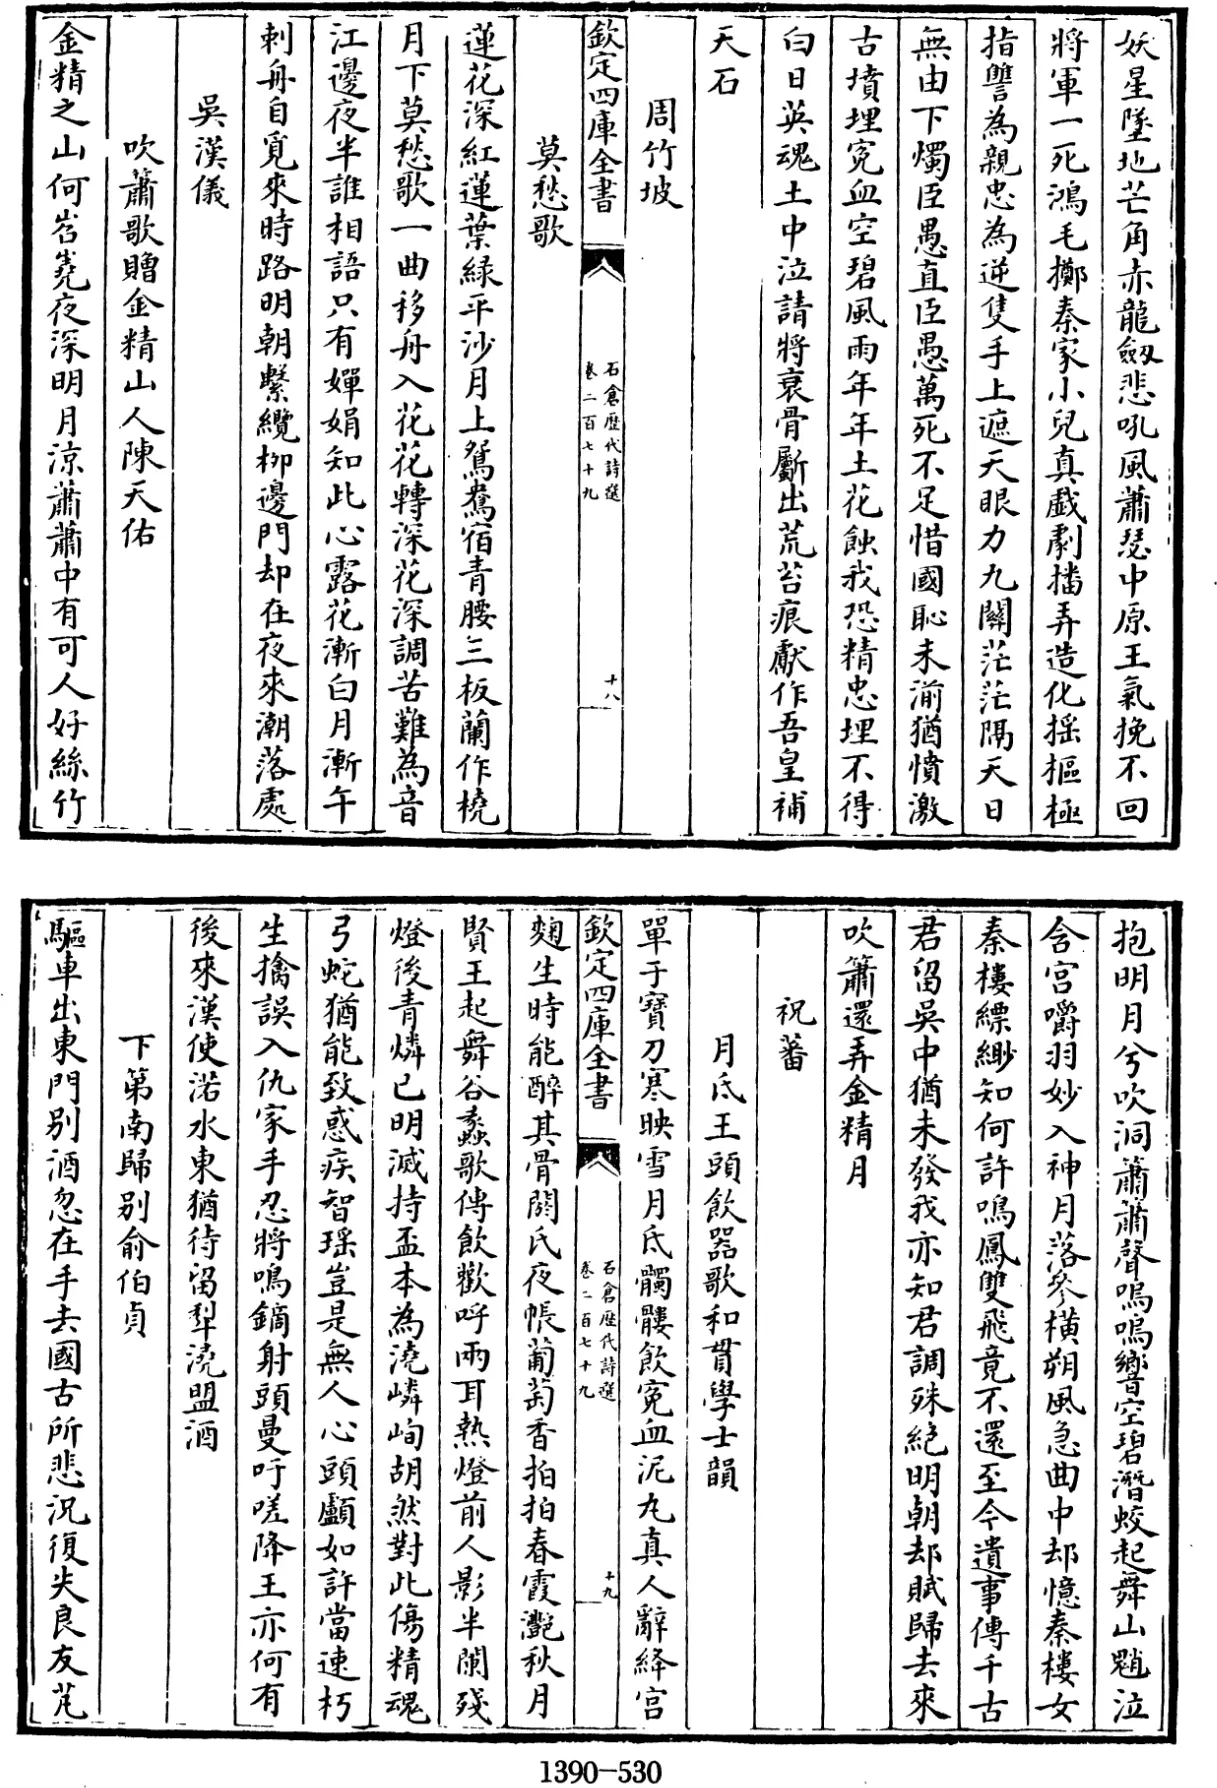 妖星墜地芒角赤龍劒悲吼風蕭瑟中原王氣挽不回
將軍一死鴻毛擲秦家小兒真戯劇播弄造化揺樞極
指讐為親忠為逆隻手上遮天眼力九關茫茫隔天日
無由下燭臣愚直臣愚萬死不足惜國恥未湔猶憤激
古墳埋寃血空碧風雨年年土花蝕我恐精忠埋不得
白日英魂土中泣請將衰骨斸出荒苔痕獻作吾皇補
天石
周竹坡
欽定四庫全書
石倉歴代詩選
卷二百七十九
十八
莫愁歌
蓮花深紅蓮葉緑平沙月上鴛鴦宿青腰三板蘭作橈
月下莫愁歌一曲移舟入花花轉深花深調苦難為音
江邊夜半誰相語只有嬋娟知此心露花漸白月漸午
刺舟自覓來時路明朝繫纜柳邊門却在夜來潮落處
吳漢儀
吹簫歌贈金精山人陳天佑
金精之山何岧嶤夜深明月涼蕭蕭中有可人好絲竹
抱明月兮吹洞簫簫聲嗚嗚響空碧潛蛟起舞山魈泣
含宫嚼羽妙入神月落參橫朔風急曲中却憶秦樓女
秦樓縹緲知何許鳴鳳雙飛竟不還至今遺事傳千古
君留吳中猶未發我亦知君調殊絶明朝却賦歸去來
吹簫還弄金精月
祝蕃
月氐王頭飲器歌和貫學士韻
單于寳刀寒映雪月氐髑髏飲寃血泥丸真人辭絳宫
欽定四庫全書
石倉歴代詩選
卷二百七十九
十九
麴生時能醉其骨閼氏夜帳葡萄香拍拍春霞灔秋月
賢王起舞谷蠡歌傳飲歡呼兩耳熱燈前人影半闌殘
燈後青燐已明滅持盃本為澆嶙峋胡然對此傷精魂
弓蛇猶能致惑疾智瑶豈是無人心頭顱如許當速朽
生擒誤入仇家手忍將鳴鏑射頭曼吁嗟降王亦何有
後來漢使渃水東猶待留犂澆盟酒
下第南歸别俞伯貞
驅車出東門别酒忽在手去國古所悲況復失良友芃
1390-530